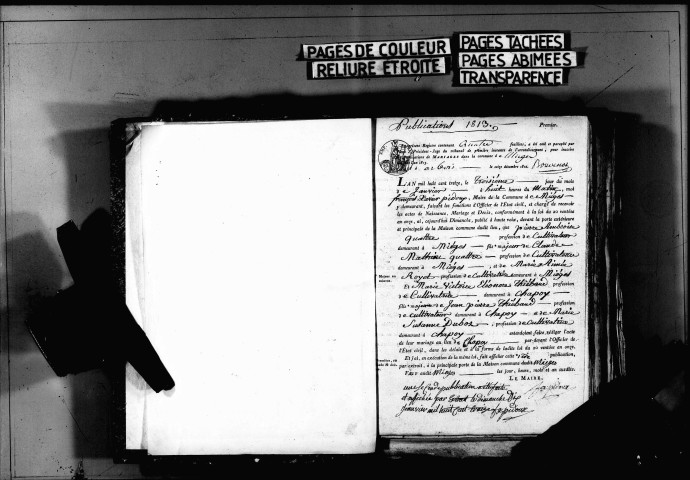 PAGES DE COULEUR
RELIURE ETROITE
PAGES TACHEES
PAGES ABIMEES
TRANSPARENCE
Publications 1813.
Premier.
Registre contenant quatre feuillets, a été coté et paraphé par
Président-Juge du tribunal de première instance de l'arrondissement, pour inscrire
publications de MARIAGES dans la commune d e Mièges
le seize décembre 1812
L'AN mil huit cent treize, le troisième jour du mois
de Janvier à huit heures du matin,
françois Xavier pidoux, Maire de la Commune d e Mièges
y demeurant, faisant les fonctions d'Officier de l'Etat civil, et chargé de recevoir
les actes de Naissance, Mariage et Décès, conformément à la loi du 20 ventôse
an onze, ai, cejourd'hui Dimanche, publié à haute voix, devant la porte extérieure
et principale de la Maison commune dudit lieu, que pierre Ambroise
quattre profession de Cultivateur
demeurant à Mièges fils majeur de Claude
Mathieu quattre profession de Cultivateur
demeurant à Mièges, et de Marie Aimée
Royet profession de Cultivatrice demeurant à Mièges
Et Marie Victoire Eléonore Thiébaud profession
de Cultivatrice demeurant à Chapoy
fille majeure de Jean pierre Thiébaud profession
de cultivateur demeurant à Chapoy et de Marie
Suzanne Dubos, profession de Cultivatrice
demeurant à Chapoy entendent faire rédiger l'acte
de leur mariage au lieu de Chapoy par-devant l'Officier de
l'Etat civil, dans les délais et la forme de ladite loi du 20 ventôse an onze.
Et j'ai, en exécution de la même loi, fait afficher cette publication,
par extrait, à la principale porte de la Maison commune dudit Mièges
FAIT audit Mièges les jour, heure, mois et an susdits.
LE MAIRE,
une seconde publication a été faite
et affichée par extrait le dimanche dix
Janvier mil huit cent treize pidoux